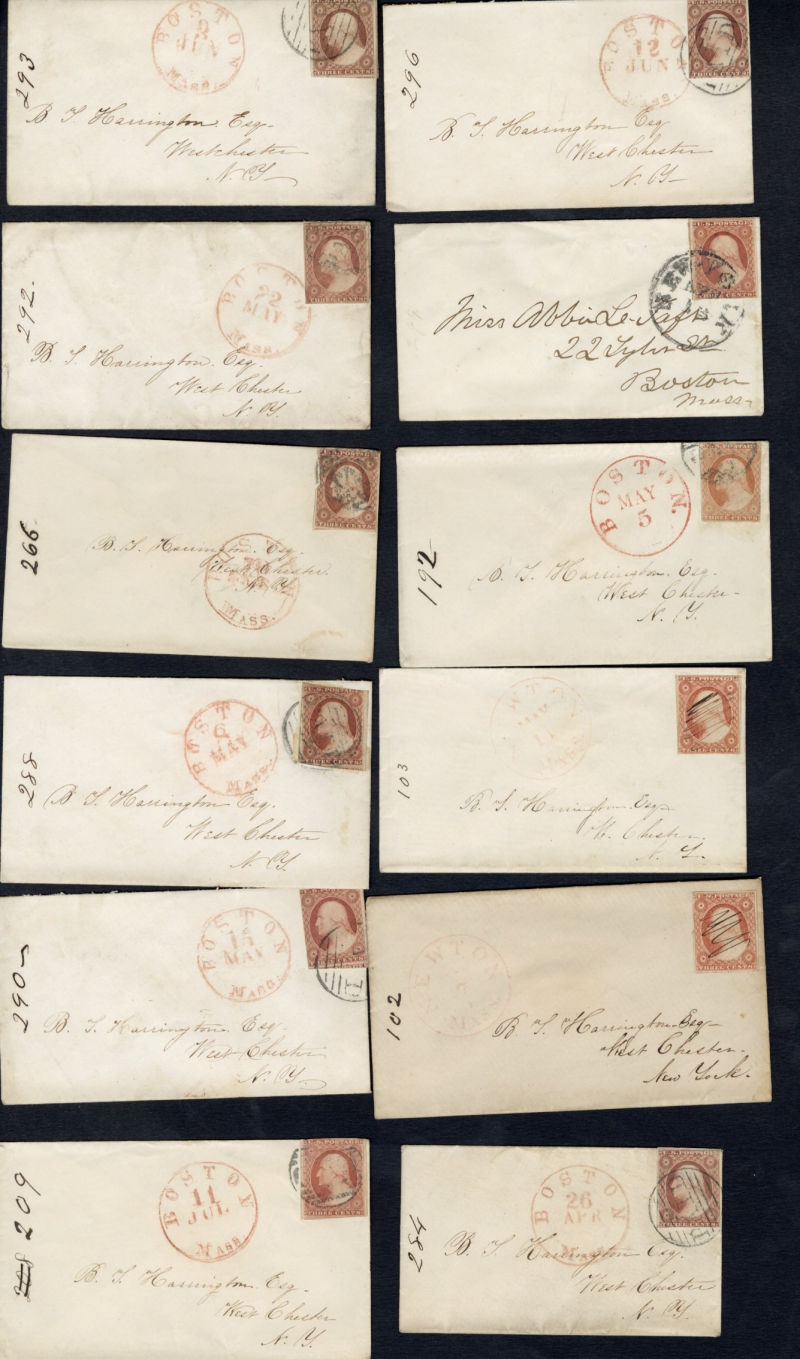 293
BOSTON
9
JUN
MASS.
THREE CENTS
B. T. Harrington Esq.
Westchester
N. Y.
296
BOSTON
12
JUN
MASS.
THREE CENTS
B. T. Harrington Esq
West Chester
N. Y.
292.
BOSTON
22
MAY
MASS.
U.S. POSTAGE
THREE CENTS
B. T. Harrington. Esq.
West Chester
N. Y.
U.S. POSTAGE
Miss Abbie
22 Tyler St.
Boston
Mass.
266
MASS.
U.S. POSTAGE
THREE CENTS
B. T. Harrington. Esq.
West Chester.
N. Y.
192
BOSTON.
MAY
5
B. T. Harrington. Esq.
West Chester.
N. Y.
288
BOSTON
6
MAY
MASS.
U.S. POSTAGE
B. T. Harrington Esq.
West Chester
N. Y.
103
WTON
MAY
11
MASS
U.S. POSTAGE
B. T. Harrington Esq.
W. Chester.
N. Y.
290
BOSTON
15
MAY
MASS.
B. T. Harrington. Esq.
West Chester
N. Y.
102
EWTON
MASS.
U.S. POSTAGE
THREE CENTS
B. T. Harrington. Esq
West Chester.
New York.
209
BOSTON
11
JUL
MASS.
THREE CENTS
B. T. Harrington. Esq.
West Chester
N. Y.
284
BOSTON
26
APR
THREE CENTS
B. T. Harrington Esq.
West Chester
N. Y.